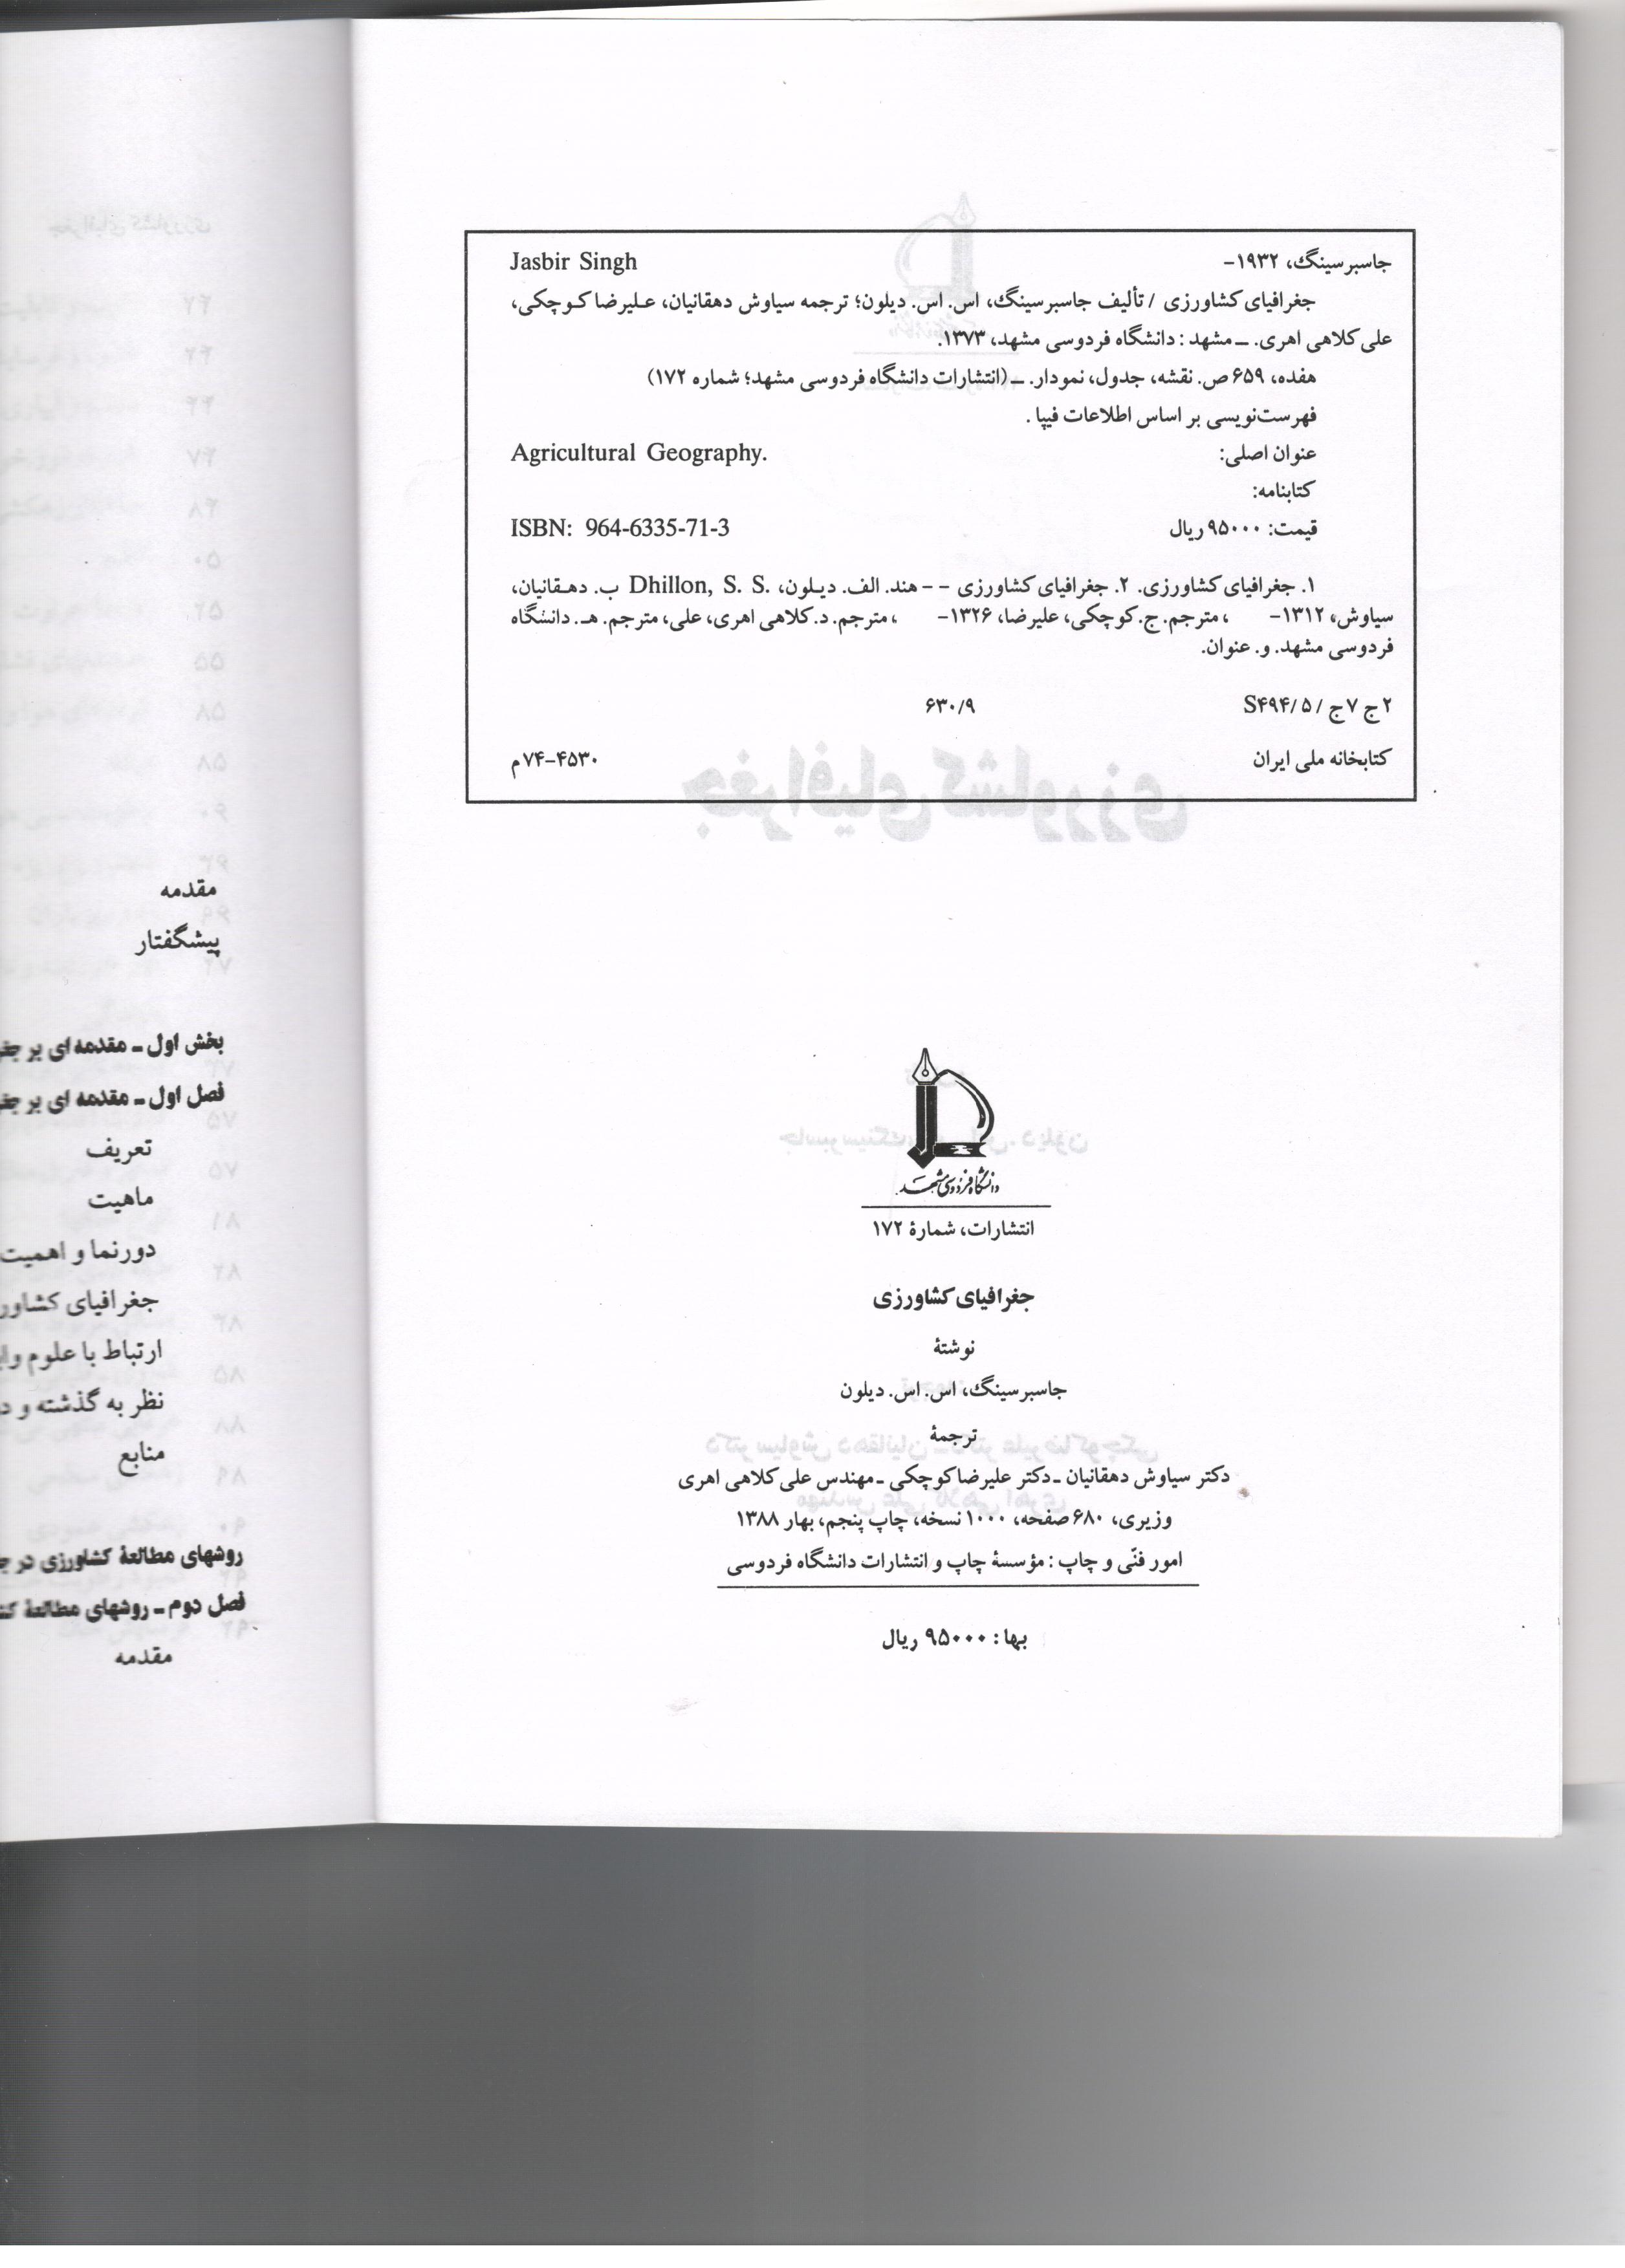 جاسبرسینگ، ۱۹۳۲- Jasbir Singh
جغرافیای کشاورزی / تألیف جاسبرسینگ، اس. اس. دیلون؛ ترجمه سیاوش دهقانیان، علیرضا کوچکی،
علی کلاهی اهری. ــ مشهد : دانشگاه فردوسی مشهد، ۱۳۷۳.
هفده، ۶۵۹ ص. نقشه، جدول، نمودار. ــ (انتشارات دانشگاه فردوسی مشهد؛ شماره ۱۷۲)
فهرست‌نویسی بر اساس اطلاعات فیپا .
عنوان اصلی: Agricultural Geography.
کتابنامه:
قیمت: ۹۵۰۰۰ ریال ISBN: 964-6335-71-3
۱. جغرافیای کشاورزی. ۲. جغرافیای کشاورزی - - هند. الف. دیلون، Dhillon, S. S. ب. دهقانیان،
سیاوش، ۱۳۱۲- ، مترجم. ج. کوچکی، علیرضا، ۱۳۲۶- ، مترجم. د. کلاهی اهری، علی، مترجم. هـ. دانشگاه
فردوسی مشهد. و. عنوان.
۲ج ۷ج / ۵/S۴۹۴ ۶۳۰/۹
کتابخانه ملی ایران ۴۵۳۰-۷۴م
دانشگاه فردوسی مشهد
انتشارات، شمارهٔ ۱۷۲
جغرافیای کشاورزی
نوشتهٔ
جاسبرسینگ، اس. اس. دیلون
ترجمهٔ
دکتر سیاوش دهقانیان ـ دکتر علیرضا کوچکی ـ مهندس علی کلاهی اهری
وزیری، ۶۸۰ صفحه، ۱۰۰۰ نسخه، چاپ پنجم، بهار ۱۳۸۸
امور فنّی و چاپ : مؤسسهٔ چاپ و انتشارات دانشگاه فردوسی
بها : ۹۵۰۰۰ ریال
مقدمه
پیشگفتار
بخش اول ـ مقدمه ای بر
فصل اول ـ مقدمه ای بر
تعریف
ماهیت
دورنما و اهمیت
جغرافیای
ارتباط با علوم
نظر به گذشته و
منابع
روشهای مطالعهٔ کشاورزی در
فصل دوم ـ روشهای مطالعهٔ
مقدمه